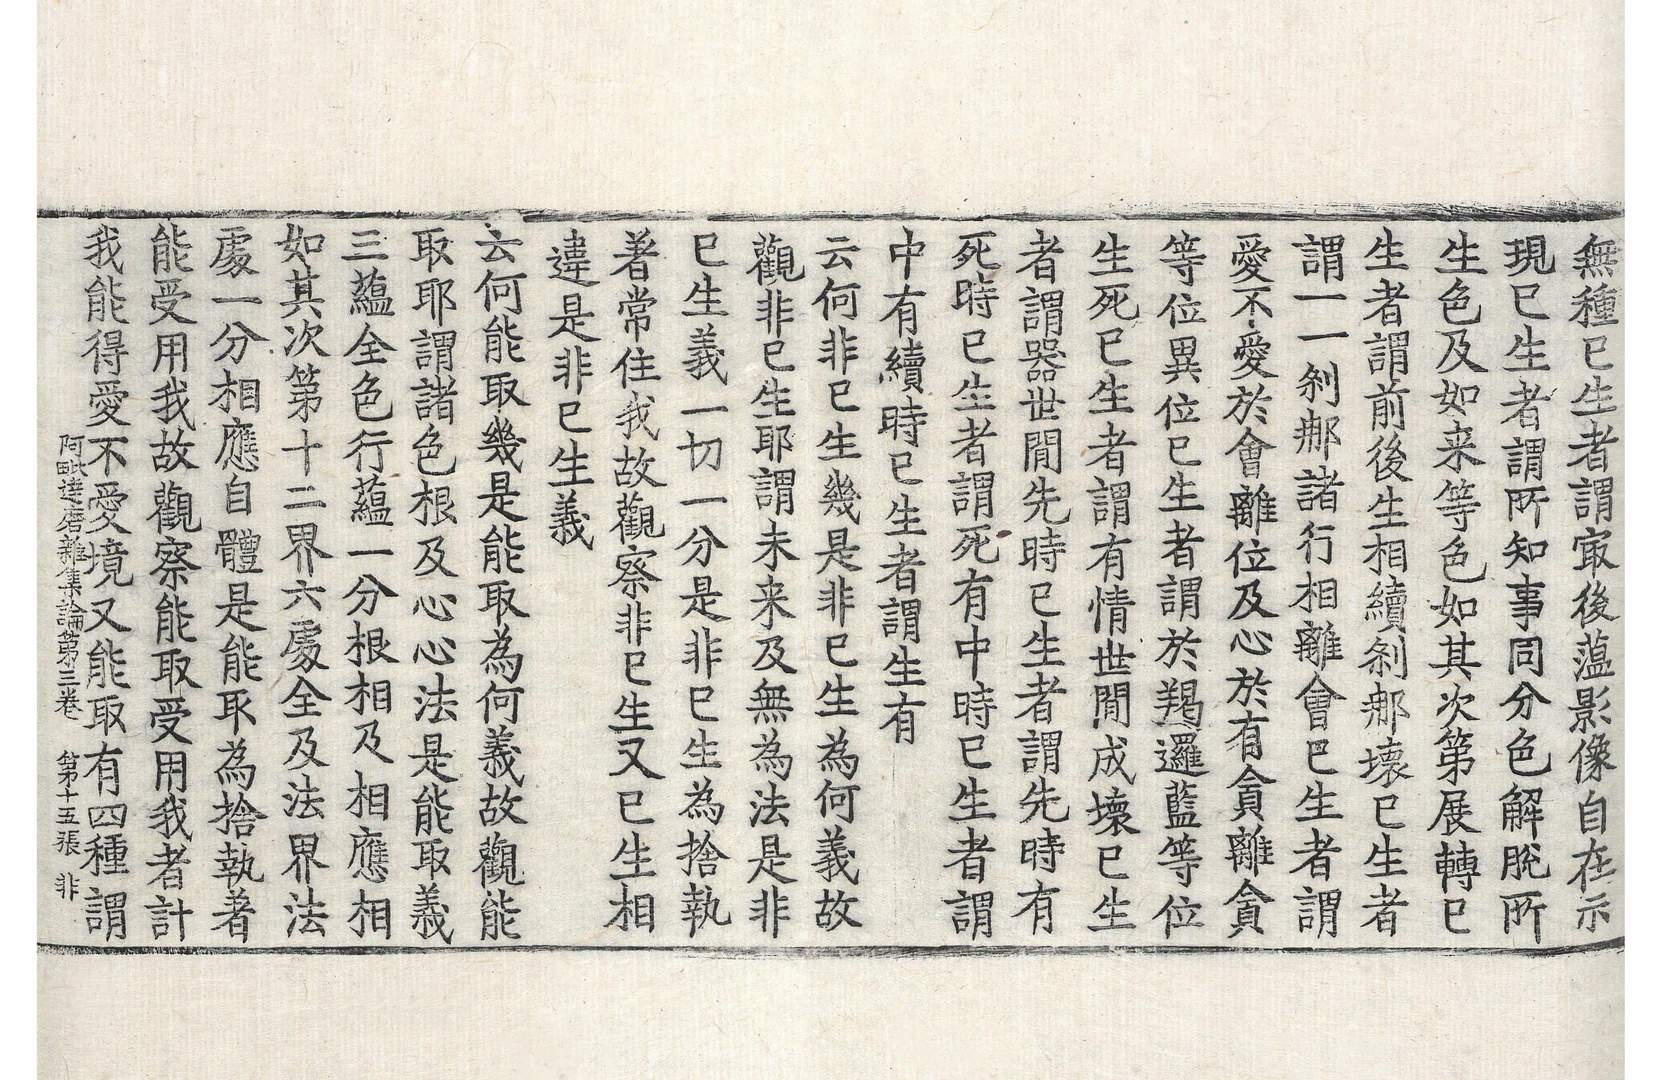 無種已生者謂㝡後蕰影像自在示
現已生者謂所知事同分色解脫所
生色及如来等色如其次第展轉已
生者謂前後生相續刹那壞已生者
謂一一刹那諸行相離會已生者謂
愛不愛於會離位及心於有貪離貪
等位異位已生者謂於羯邏藍等位
生死已生者謂有情世間成壞已生
者謂器世間先時已生者謂先時有
死時已生者謂死有中時已生者謂
中有續時已生者謂生有
云何非已生幾是非已生為何義故
觀非已生耶謂未来及無為法是非
已生義一切一分是非已生為捨執
著常住我故觀察非已生又已生相
違是非已生義
云何能取幾是能取為何義故觀能
取耶謂諸色根及心心法是能取義
三蘊全色行蘊一分根相及相應相
如其次第十二界六處全及法界法
處一分相應自體是能取為捨執著
能受用我故觀察能取受用我者計
我能得愛不愛境又能取有四種謂
阿毗達磨雜集論第三卷 第十五張 非